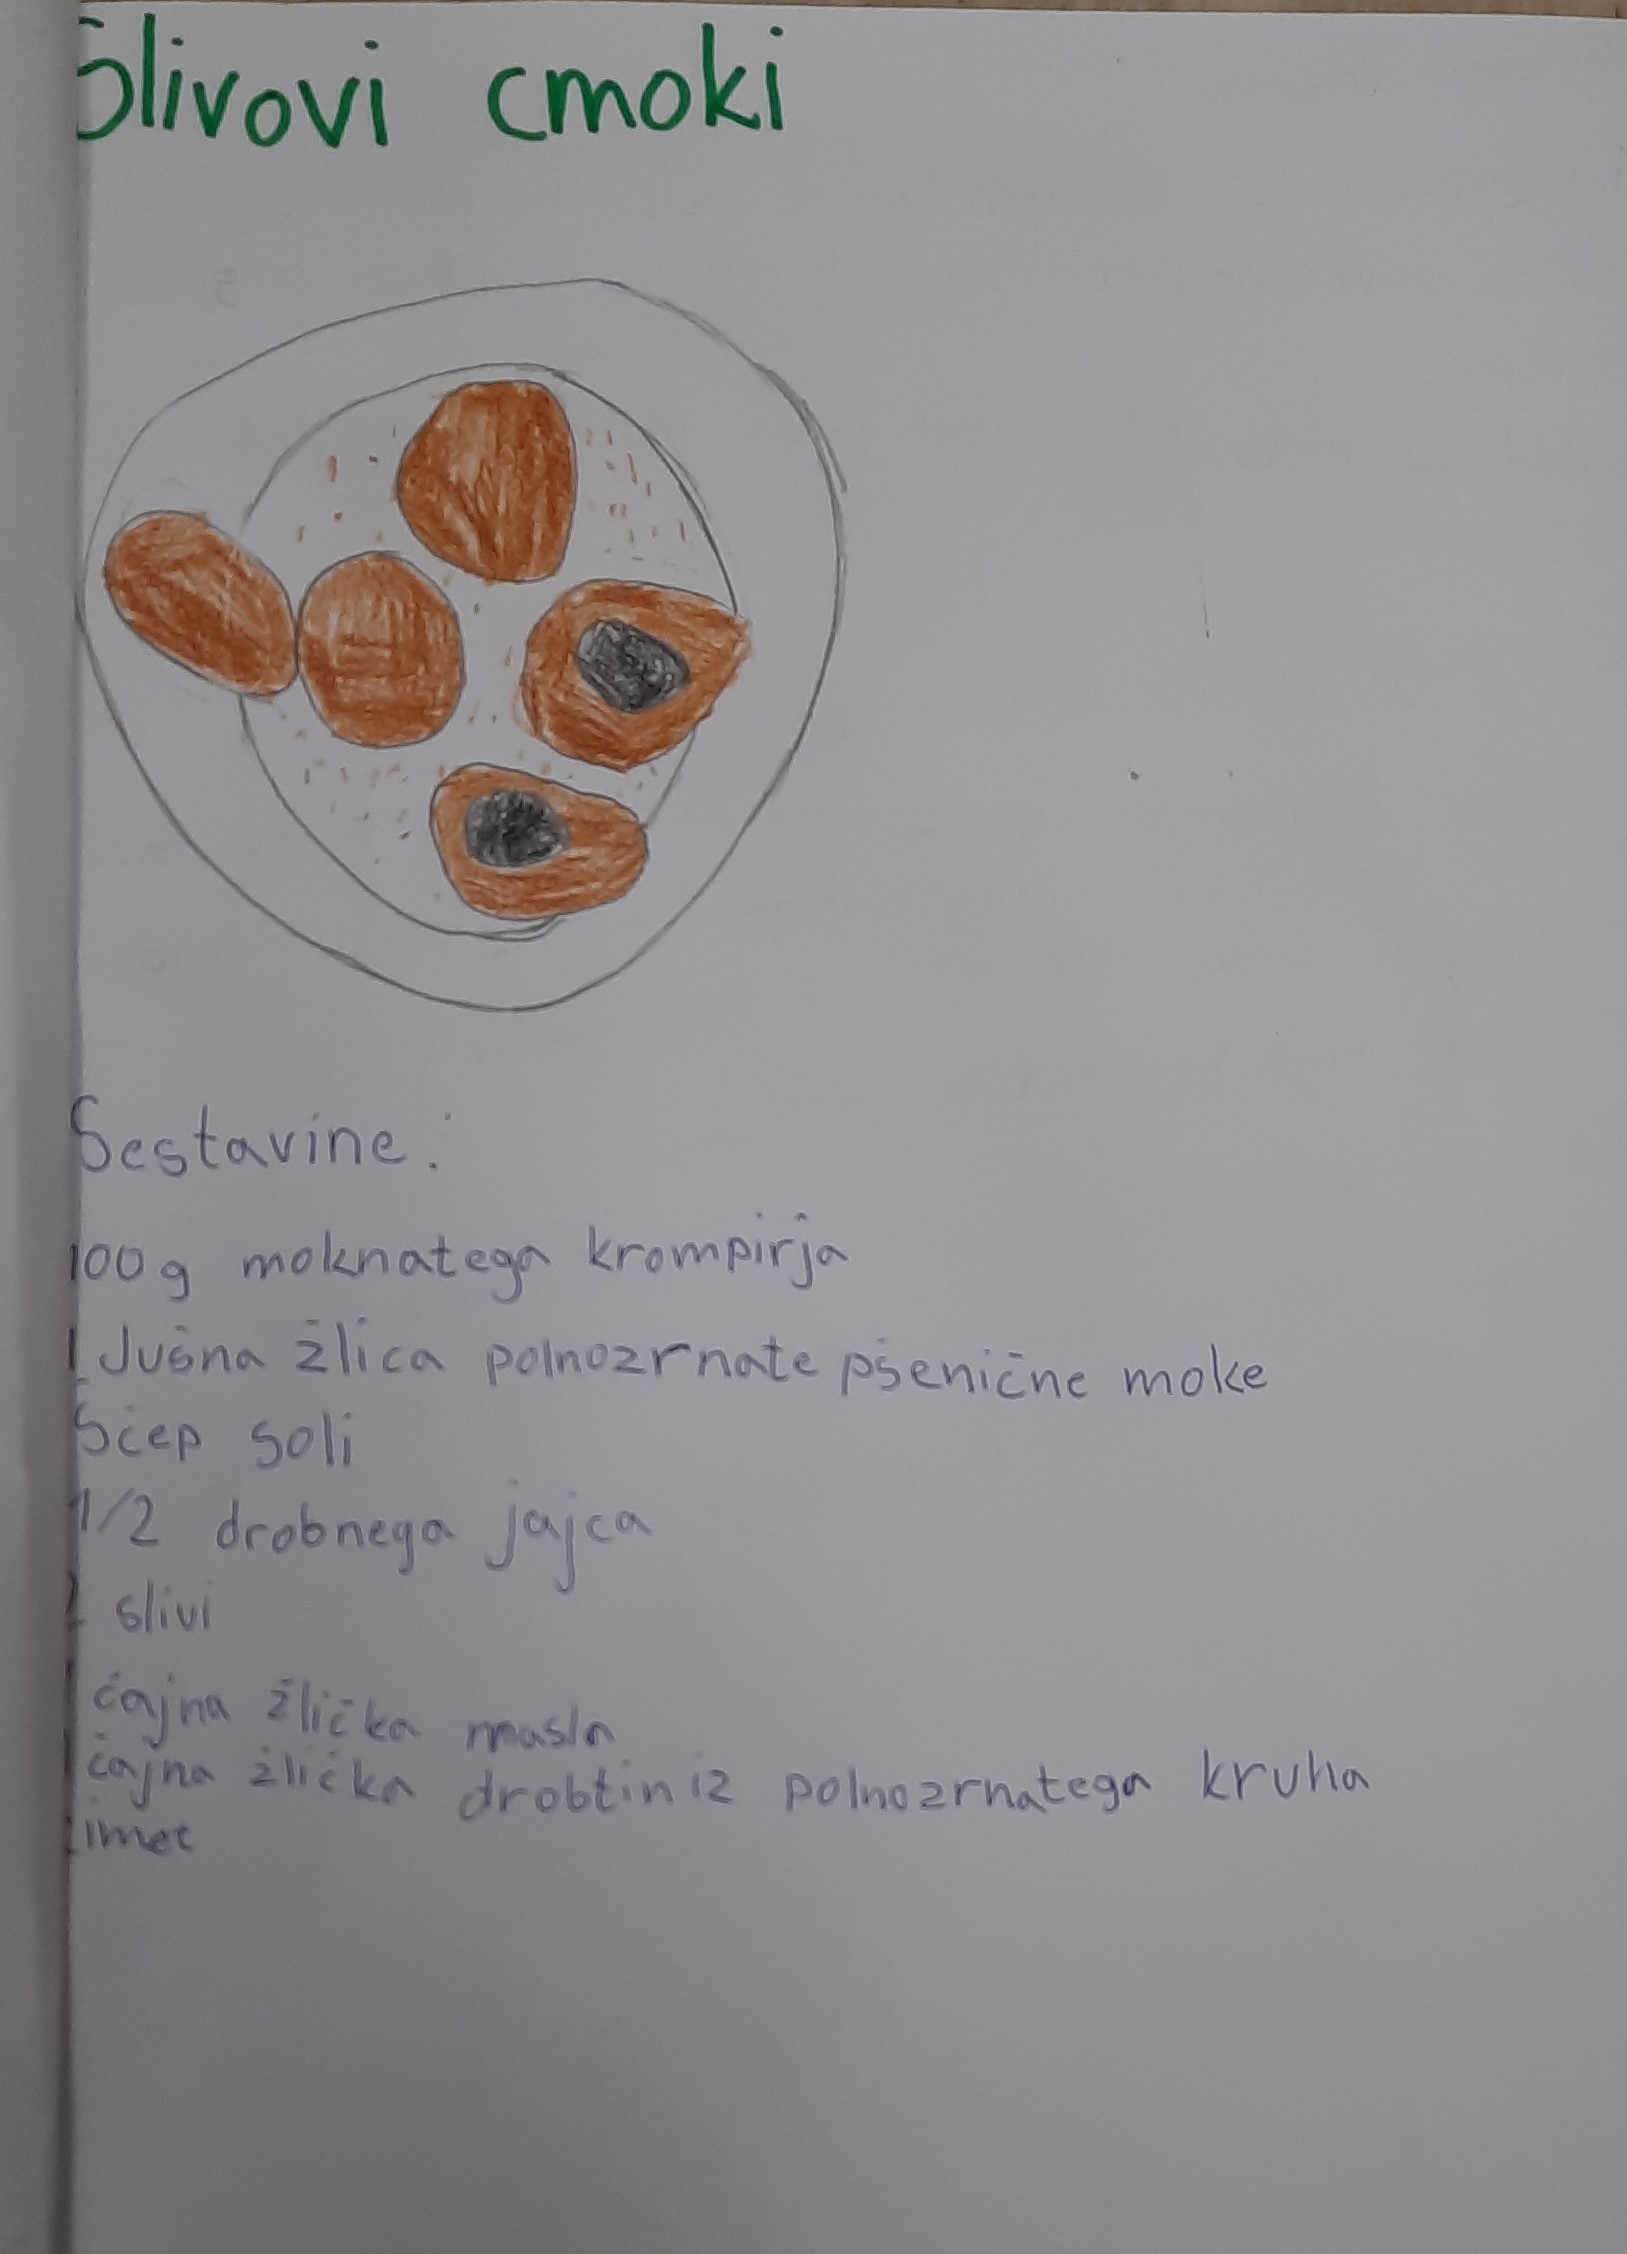 Slivovi cmoki
Sestavine:
100g moknatega krompirja
1 Jušna žlica polnozrnate pšenične moke
Ščep soli
1/2 drobnega jajca
2 slivi
1 čajna žlička masla
1 čajna žlička drobtin iz polnozrnatega kruha
cimet